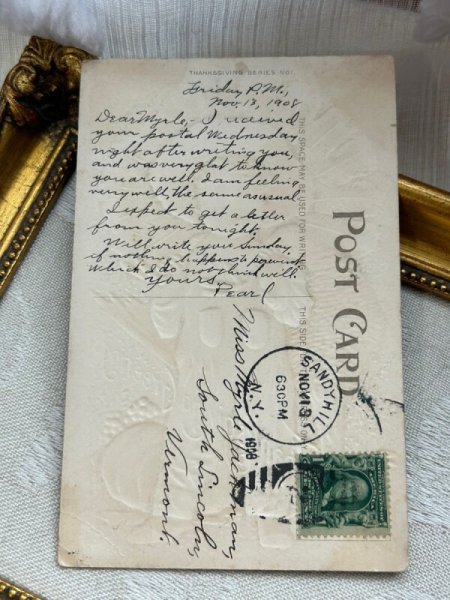 THANKSGIVING SERIES NO1.
Friday P.M.,
Nov. 13, 1908
Dear Myrle,- I received
your postal Wednesday
night after writing you,
and was very glat to know
you are well. I am feeling
very well, the same as usual.
I expect to get a letter
from you tonight.
Will write you Sunday
if nothing happens to prevent
which I do not think will.
Yours,
Pearl
THIS SPACE MAY BE USED FOR WRITING.
POST CARD
THIS SIDE
SANDYHILL
NOV 13
630PM
N.Y.
1908
Miss Myrle
South Lincoln,
Vermont.